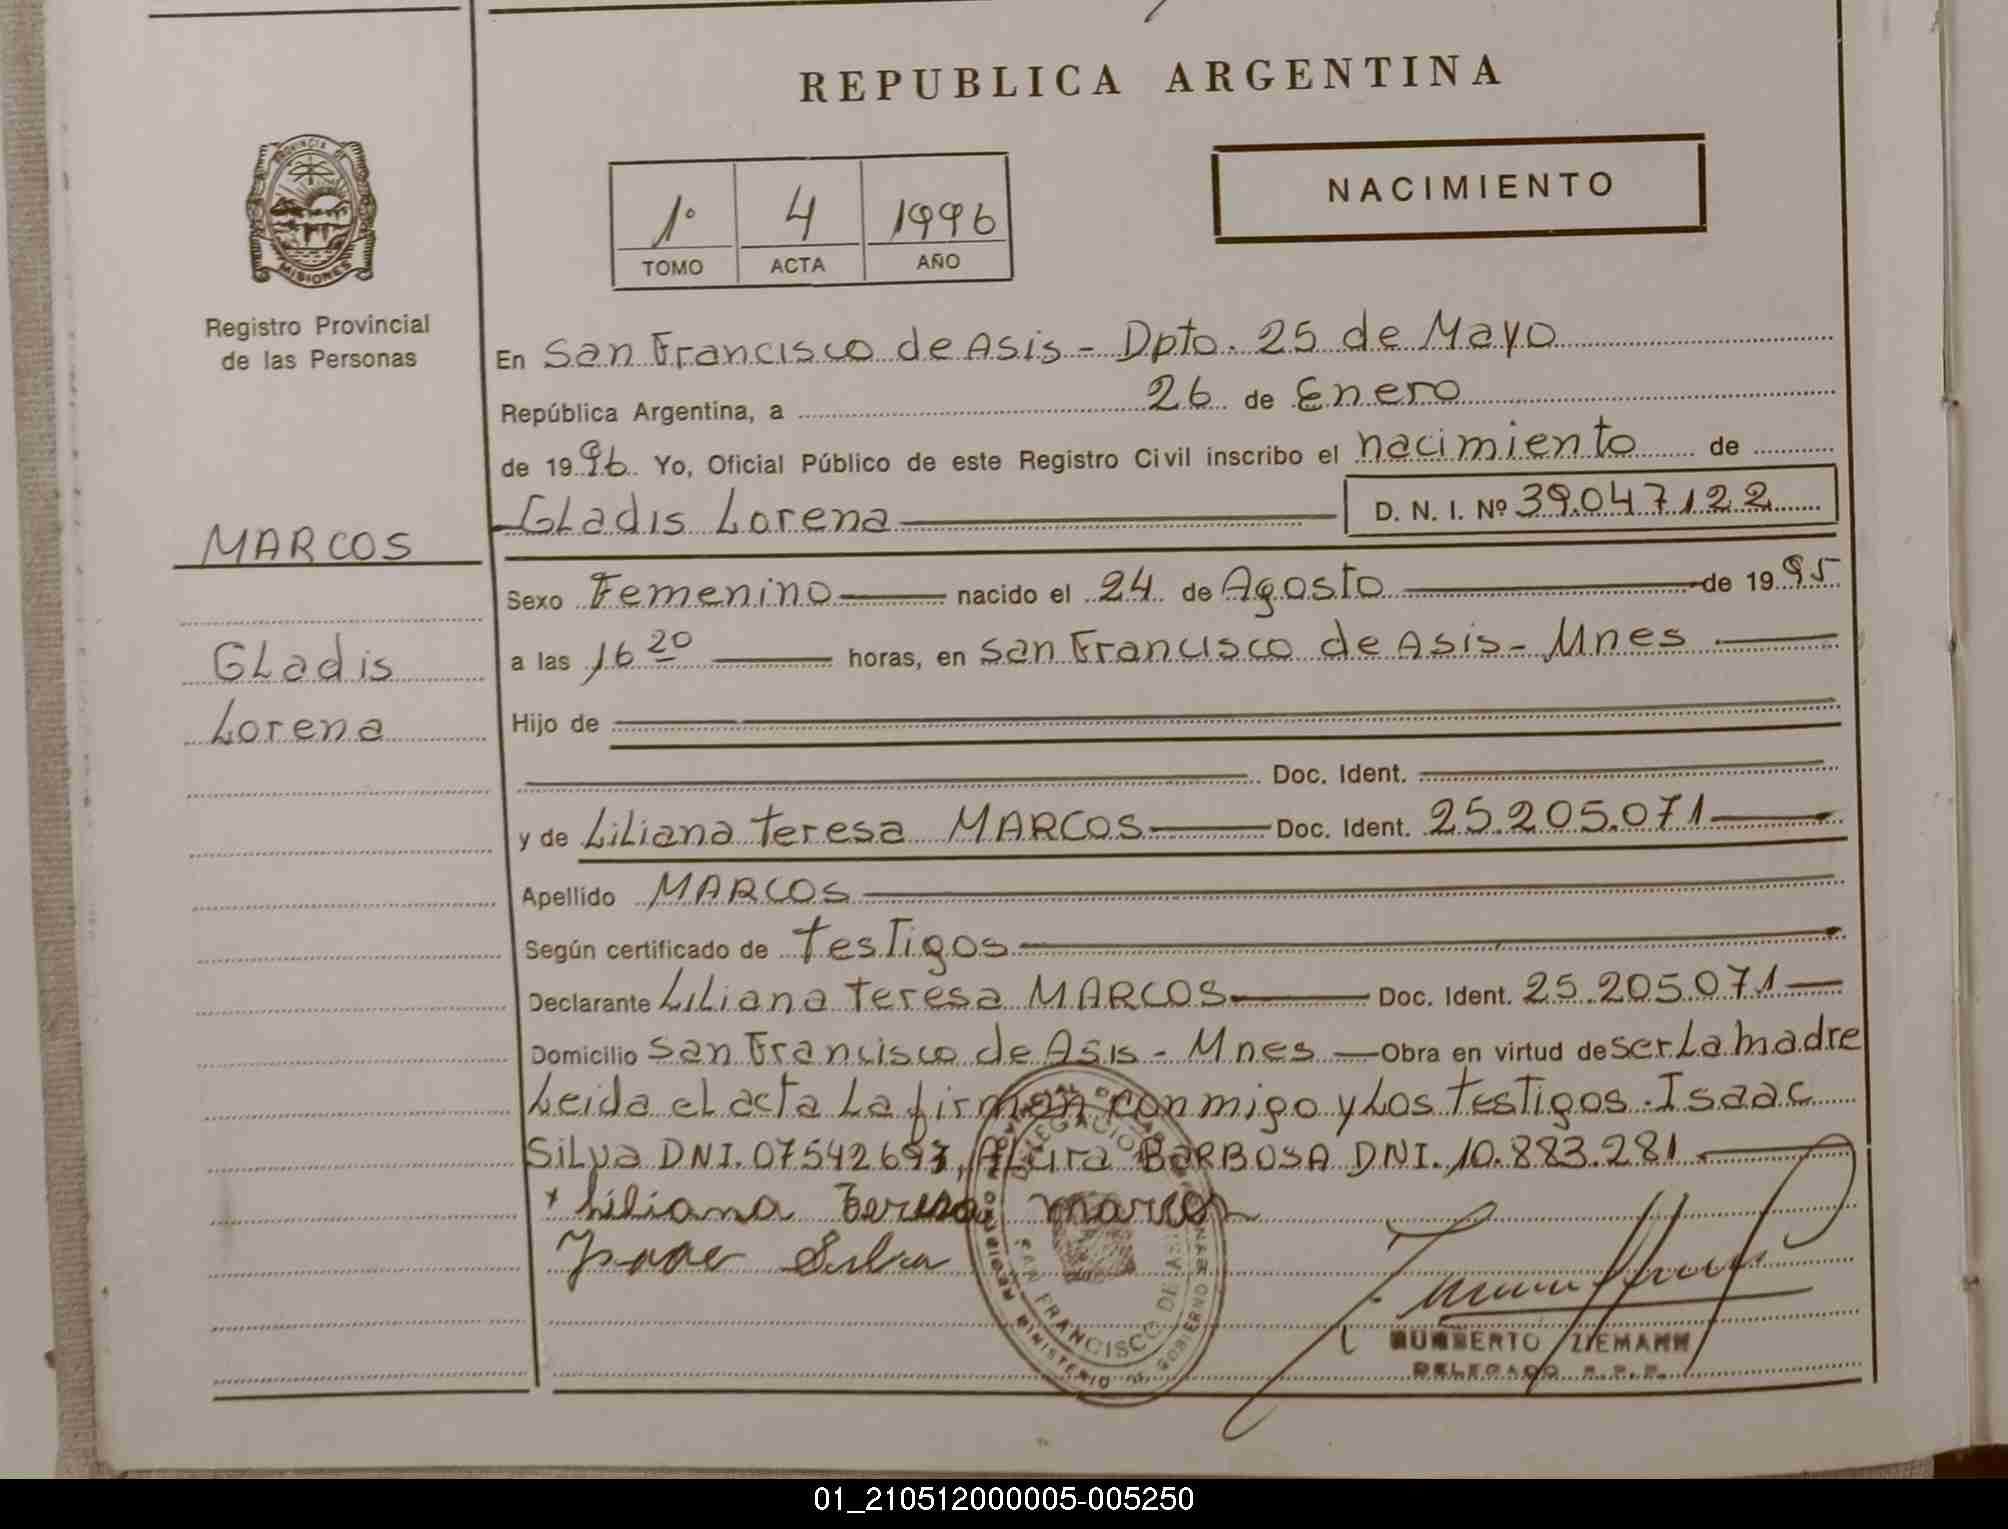 REPUBLICA ARGENTINA
PROVINCIA DE
MISIONES
Registro Provincial
de las Personas
1º 4 1996
TOMO ACTA AÑO
NACIMIENTO
En San Francisco de Asis - Dpto. 25 de Mayo
República Argentina, a 26 de Enero
de 1996. Yo, Oficial Público de este Registro Civil inscribo el nacimiento de
Gladis Lorena D. N. I. Nº 39.047.122
MARCOS
Gladis
Lorena
Sexo Femenino nacido el 24 de Agosto de 1995
a las 16 20 horas, en San Francisco de Asis - Mnes
Hijo de
Doc. Ident.
y de Liliana Teresa MARCOS Doc. Ident. 25.205.071
Apellido MARCOS
Según certificado de Testigos
Declarante Liliana Teresa MARCOS Doc. Ident. 25.205.071
Domicilio San Francisco de Asis - Mnes Obra en virtud de ser La madre
Leida el acta La firman conmigo y Los Testigos. Isaac
Silva DNI. 07542693, BARBOSA DNI. 10.883.281
x Liliana Teresa Marcos
Isaac Silva
DELEGACION
SAN FRANCISCO DE ASIS
MINISTERIO DE GOBIERNO
HUMBERTO ZIEMANN
DELEGADO R.P.P.
01_210512000005-005250